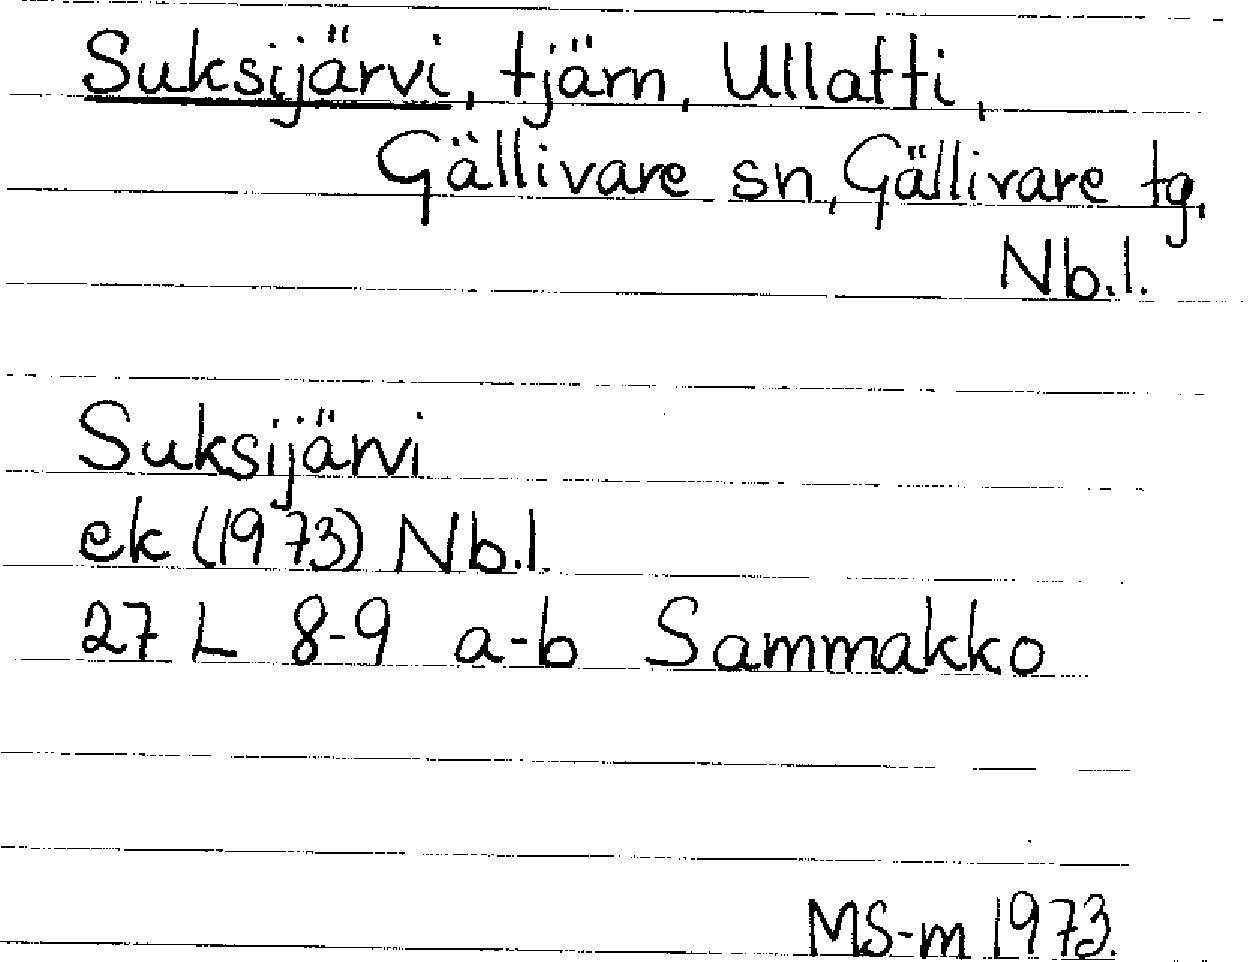 Suksijärvi, tjärn, Ullatti,
Gällivare sn, Gällivare tg,
Nb.l.
Suksijärvi
ek (1973) Nb.l.
27 L 8-9 a-b Sammakko
MS-m 1973.